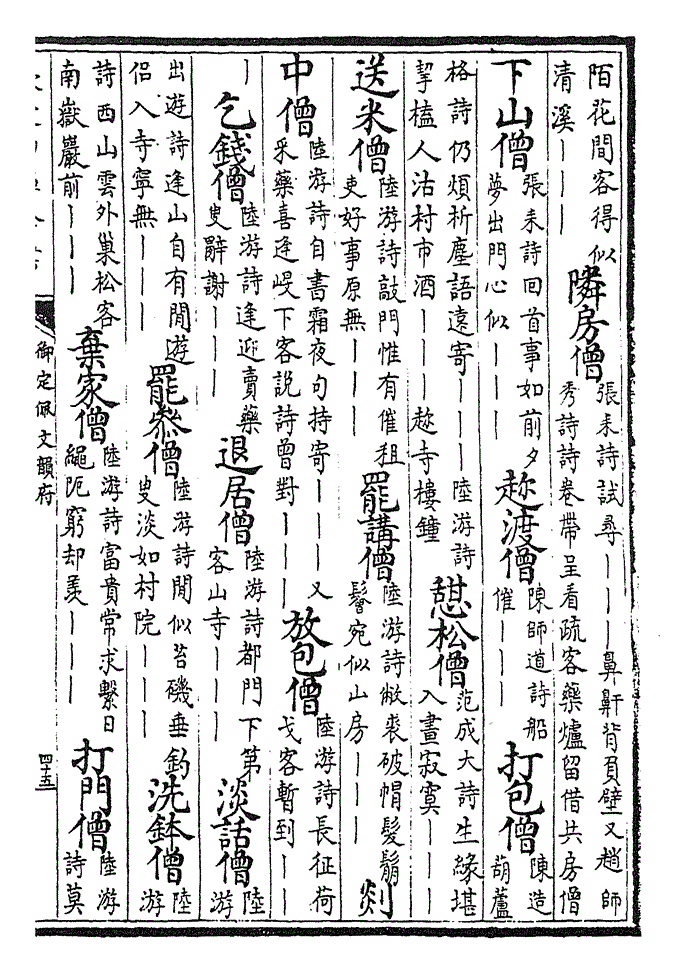 陌花間客得似清溪丨丨丨 隣房僧 張耒詩試尋丨丨丨鼻鼾背負壁又趙師秀詩詩卷帶呈看疏客藥爐留借共房僧
下山僧 張耒詩回首事如前夕夢出門心似丨丨丨 趂渡僧 陳師道詩船催丨丨丨 打包僧 陳造葫蘆
格詩仍煩析塵語遠寄丨丨丨陸游詩挈榼人沽村市酒丨丨丨趂寺樓鐘 憇松僧 范成大詩生緣堪入畫寂寞丨丨丨
送米僧 陸游詩敲門惟有催租吏好事原無丨丨丨 罷講僧 陸游詩敝裘破帽髮鬅鬙宛似山房丨丨丨 剡
中僧 陸游詩自書霜夜句持寄丨丨丨又采藥喜逢岐下客説詩曾對丨丨丨 放包僧 陸游詩長征荷戈客暫到丨丨
丨 乞錢僧 陸游詩逢迎賣藥叟辭謝丨丨丨 退居僧 陸游詩都門下第客山寺丨丨丨 淡話僧 陸游
出遊詩逢山自有閒遊侣入寺寧無丨丨丨 罷叅僧 陸游詩閒似苔磯垂釣叟淡如村院丨丨丨 洗鉢僧 陸游
詩西山雲外巢松客南嶽巖前丨丨丨 棄家僧 陸游詩富貴常求繫日繩阨窮却羨丨丨丨 打門僧 陸游詩莫
御定佩文韻府
四十五